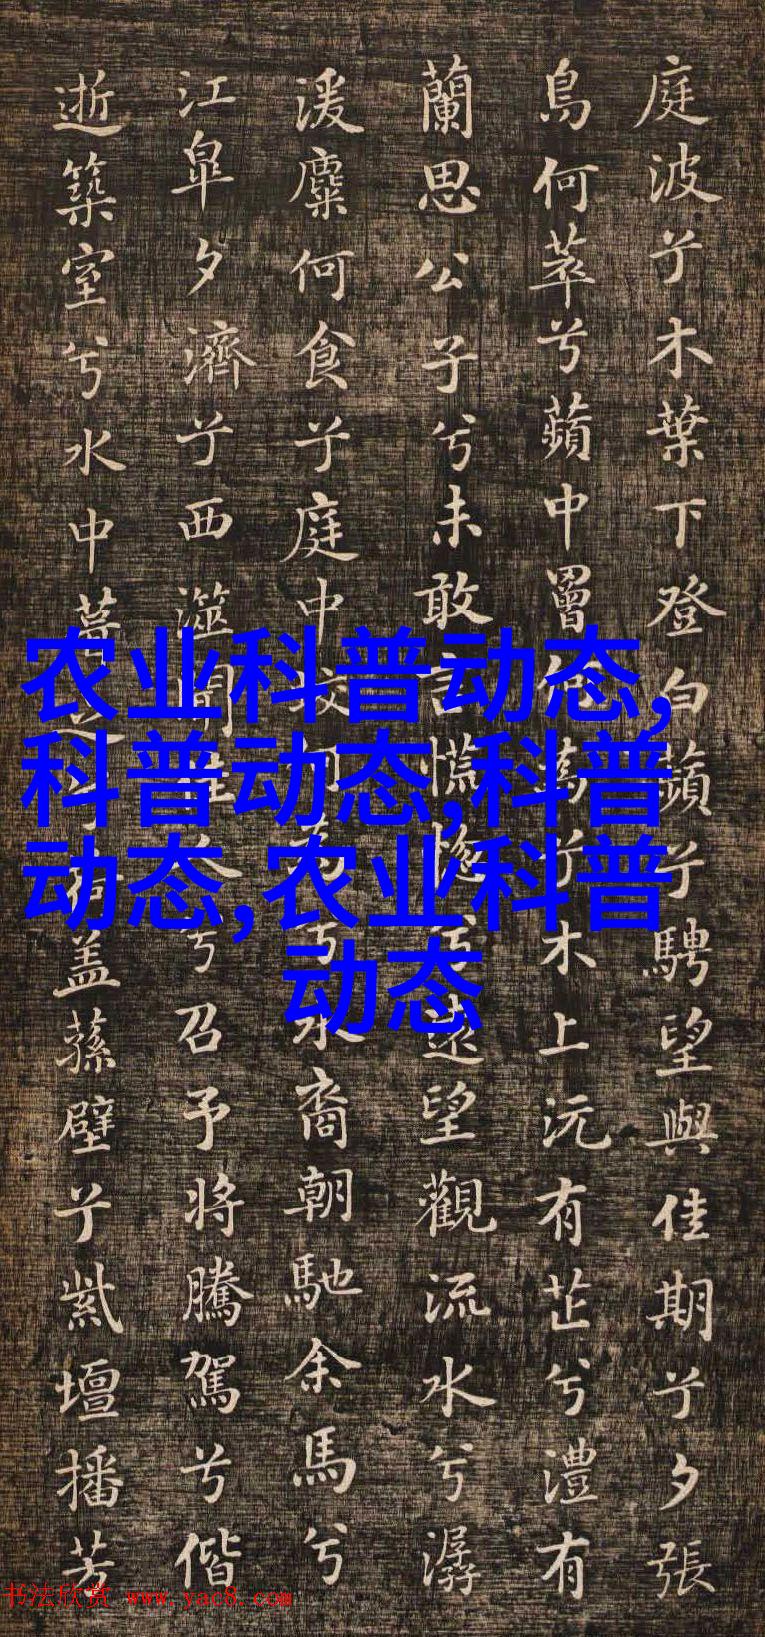 庭波兮木葉下登白蘋兮騁望與佳期兮夕張
鳥何萃兮蘋中罾何為兮木上沅有芷兮澧有
蘭思公子兮未敢言慌惚兮遠望觀流水兮潺
湲麋何食兮庭中蛟何為兮水裔朝馳余馬兮
江皐夕濟兮西澨聞佳人兮召予將騰駕兮偕
逝築室兮水中葺之兮荷盖蓀壁兮紫壇播芳
农业科普动态,
科普动态,科普
动态,农业科普
动态
书法欣赏 www.yac8.com